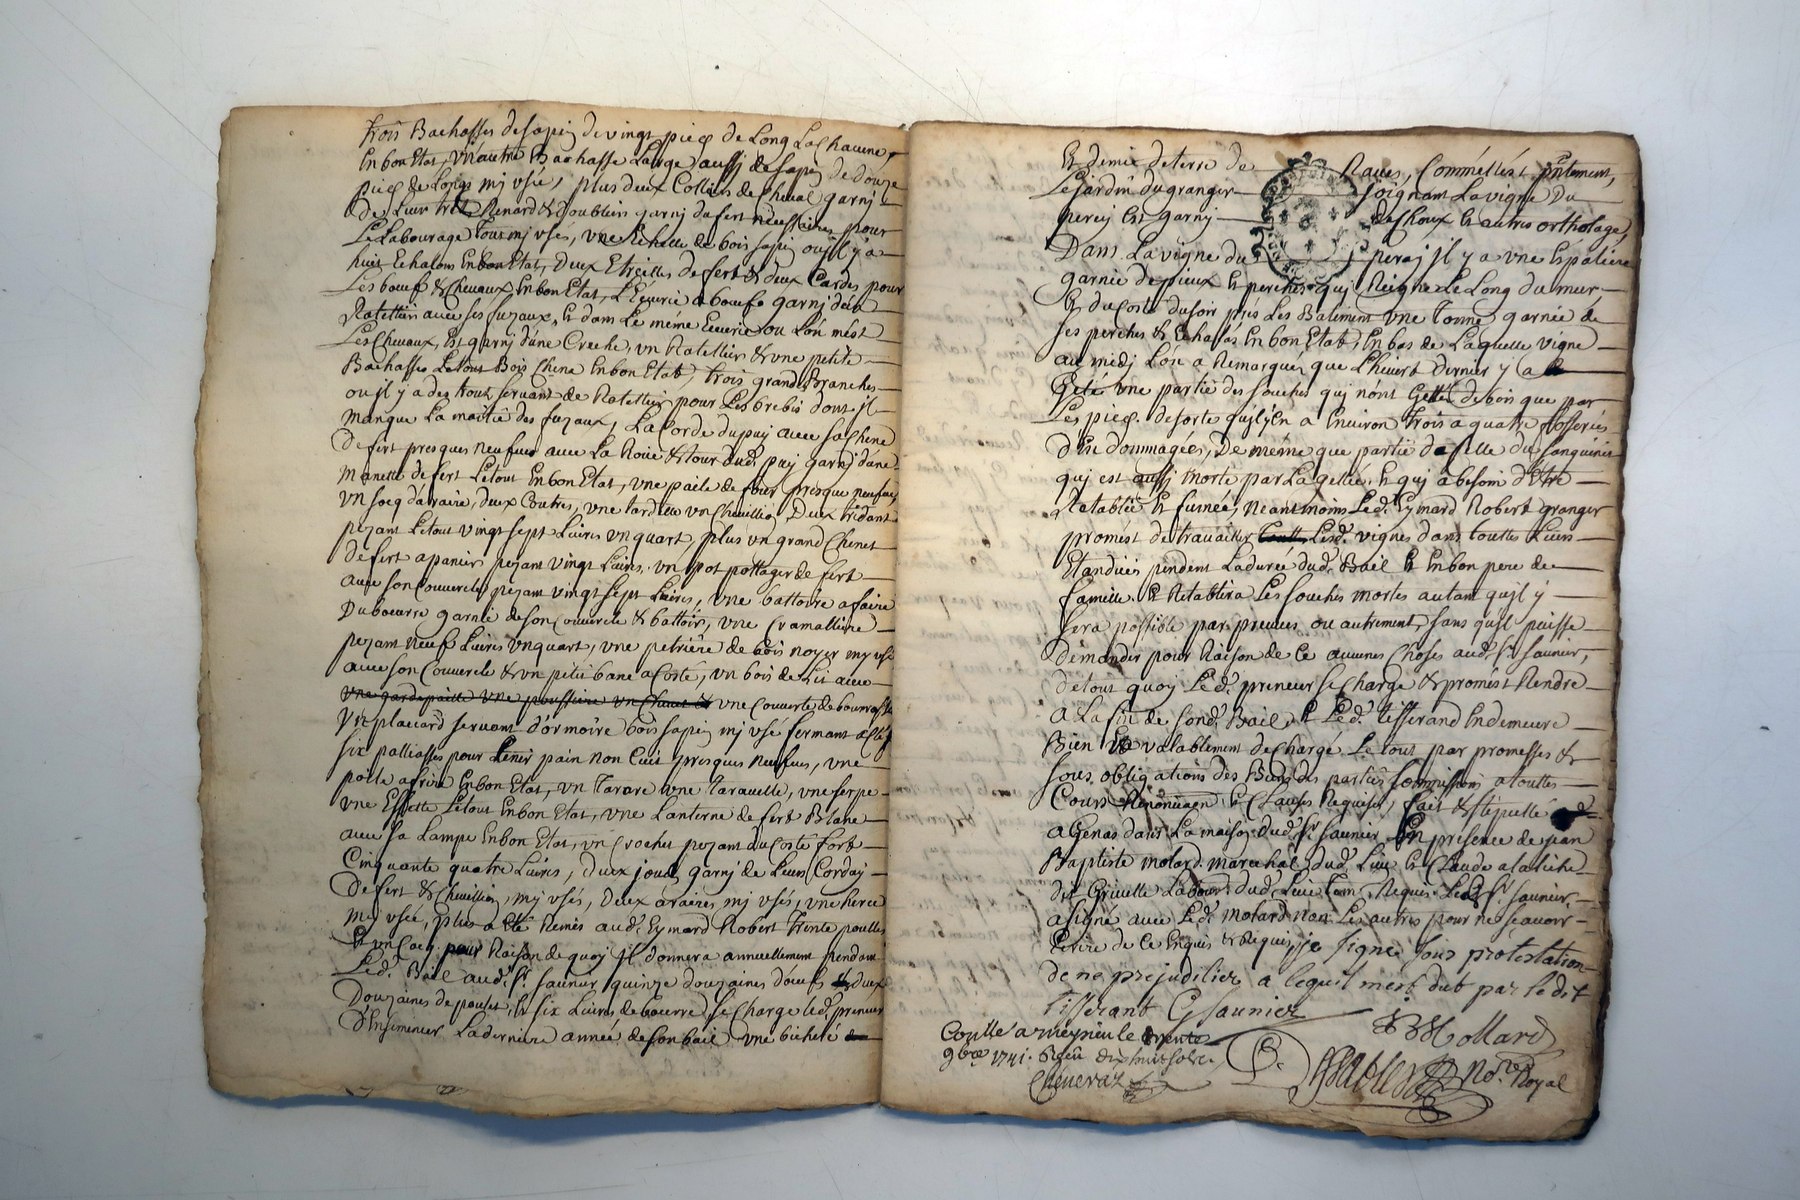 trois Bachasses de sapin de vingt pieds de Long La Chacune,
En bon Etat, Un autre Bachasse Large aussi de sapin de douze
pieds de Longs my usée, plus deux Colliers de Cheval garny
de Leur Renard & doublier garny du fert necessaires pour
Le Labourage Tout my usés, une Echelle de bois sapin ou il y a
huit Echalons En bon Etat, Deux Etreilles de fert & deux Cardes pour
Les boeuf & Chevaux En bon Etat, L'Ecurie a boeufs garny d'un
Ratellier avec ses fuzaux, & dans Le méme Ecurie ou L'on mest
Les Chevaux, Est garny d'une Creche, un Ratellier & une petite
Bachasse Le tout Bois Chene En bon Etat, trois grands Branches
ou il y a des trous servant de Ratellier pour Les brebis dont il
manque La moitié des fuzaux, La Corde du puy avec sa Chene
de fert presques neufve avec La Roüe & tour dud. puy garny d'une
Manette de fert Le tout En bon Etat, une paele de four presque neufve,
un socq d'araire, deux Coutres, une tardille un Chevillion, Deux tridants
pezant Le tout vingt sept Livres un quart, plus un grand Chenet
de fert a panier pezant vingt Livres, un pot pottager de fert
avec son Couvercle pezant vingt sept Livres, une battoire a faire
Du boeurre garnie de son Couvercle & battoir, une Cramalliere
pezant neuf Livres un quart, une petriére de bois noyer my usé
avec son Couvercle & un petit banc a Costé, un bois de Lit avec
une gardepaille une poussiere un Chevet & une Couverte de bourras
Un placcard servant d'ormoire bois sapin my usé fermant a Clef
six palliasses pour tenir pain non Cuit presques neufves, une
poile a frire En bon Etat, un Tarare une Taravelle, une serpe
une Essette Le tout En bon Etat, une Lanterne de fert Blanc
avec sa Lampe En bon Etat, un Crochet pezant du Costé fort
Cinquante quatre Livres, deux jougs garny de Leurs Corday
De fert & Chevillion, my usés, Deux araires my usés, une herce
my usée, plus a Eté Remis aud. Eymard Robert Trente poulles
Et un Cocq pour Raison de quoy Il donnera annuellement pendant
Led. Bail aud. Sr. saunier quinze douzaines d'oeufs & deux
Douzaines de poulet, & six Livres de beurre, se Charge led. preneur
D'Ensemencer La derniere année de son bail une bicheté
Et demix de terre de Raves, Comme Elle Est presentement,
Le jardin du granger joignant La vigne Du
perey Est garny de Choux & autres ortholage,
Dans La vigne du perey Il y a une Espaliére
garnie de pieux & perches qui Reigne Le Long du mur,
Et du Coste du soir prés Les Batiment une Tonne garnée de
ses perches & Echalas En bon Etat, En bas de Laquelle vigne
au midy L'on a Remarqué que L'hivert dernier y a
Gelé une partie des souches qui n'ont Getté de bois que par
Les pieds. de sorte qu'il y En a Environ trois a quatre fosserées
d'En dommagées, De méme que partie de selle du sanguinir
qui est aussi morte par La gellée, & qui a besoin d'étre
Retablie & fumée, neantmoins Led. Eymard Robert granger
promest de travailler Lesd. vignes dans touttes Leurs
Etandües pendent La durée dud. Bail & En bon pere de
famille & Retablira Les souches mortes autant qu'il y
sera possible par preuves ou autrement, sans qu'il puisse
Démander pour Raison de Ce aucunes Choses aud. Sr. saunier,
de tout quoy Led. preneur se Charge & promest Rendre
A La fin de sond. Bail, & Led. Tisserand En demeure
Bien & valablement dechargé. Le tout par promesses &
sous obligations des Biens des parties soumissions a touttes
Cours Renonciaon & Clauses Requises, fait & stipullé
a Genas dans La maison dud. Sr. saunier En présence de jean
Baptiste molard marechal dud. Lieu & Claude
dit Grivelle Labour. dud. Lieu Tem. Requis Led. Sr. saunier
a signé avec Led. molard non Les autres pour ne sçavoir
Ecrire de Ce Enquis & Requis, je signe sous protestation
de ne prejudicier a Cequil mest dub par le dit
Tisserant G saunier
JB Mollard
Conllé a meyzieu le trente
9bre 1741. Reçu dix huit sols.
Cheneraz
Nore. Royal